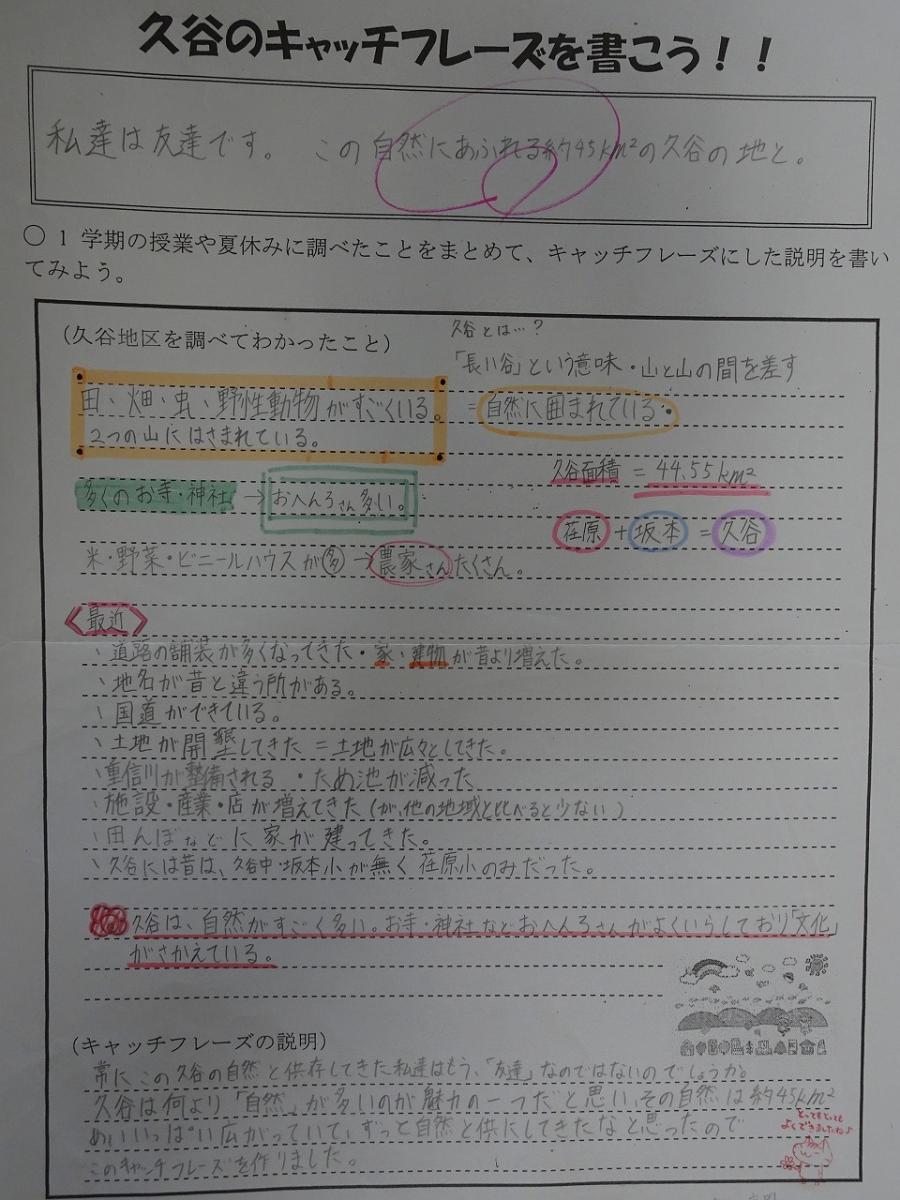 久谷のキャッチフレーズを書こう！！
私達は友達です。 この自然にあふれる約45km²の久谷の地と。
○ 1 学期の授業や夏休みに調べたことをまとめて、キャッチフレーズにした説明を書い
てみよう。
(久谷地区を調べてわかったこと)
久谷とは…？
「長い谷」という意味・山と山の間を差す
田、畑、虫、野性動物がすごくいる。
＝自然に囲まれている・
2つの山にはさまれている。
久谷面積 = 44.55km²
多くのお寺・神社→おへんろさん多い。
荏原+坂本=久谷
米・野菜・ビニールハウスが多→農家さんたくさん。
〈最近〉
、道路の舗装が多くなってきた・家・建物が昔より増えた。
、地名が昔と違う所がある。
、国道ができている。
、土地が開墾してきた＝土地が広々としてきた。
、重信川が整備される ・ため池が減った
、施設・産業・店が増えてきた(が、他の地域と比べると少ない)
、田んぼなどに家が建ってきた。
、久谷には昔は、久谷中・坂本小が無く荏原小のみだった。
久谷は、自然がすごく多い。お寺・神社などおへんろさんがよくいらしており「文化」
がさかえている。
(キャッチフレーズの説明)
常にこの久谷の自然と供存してきた私達はもう、「友達」なのではないのでしょうか。
久谷は何より「自然」が多いのが魅力の一つだと思い、その自然は約45km²
めいいっぱい広がっていて、ずっと自然と供にしてきたなと思ったので
このキャッチフレーズを作りました。
とってもとっても
よくできましたね♪